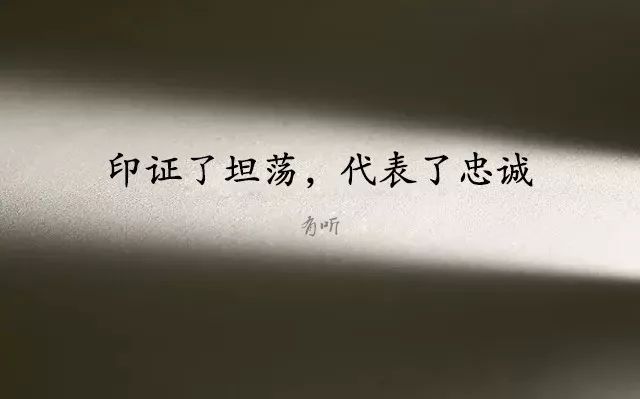 印证了坦荡，代表了忠诚
有听